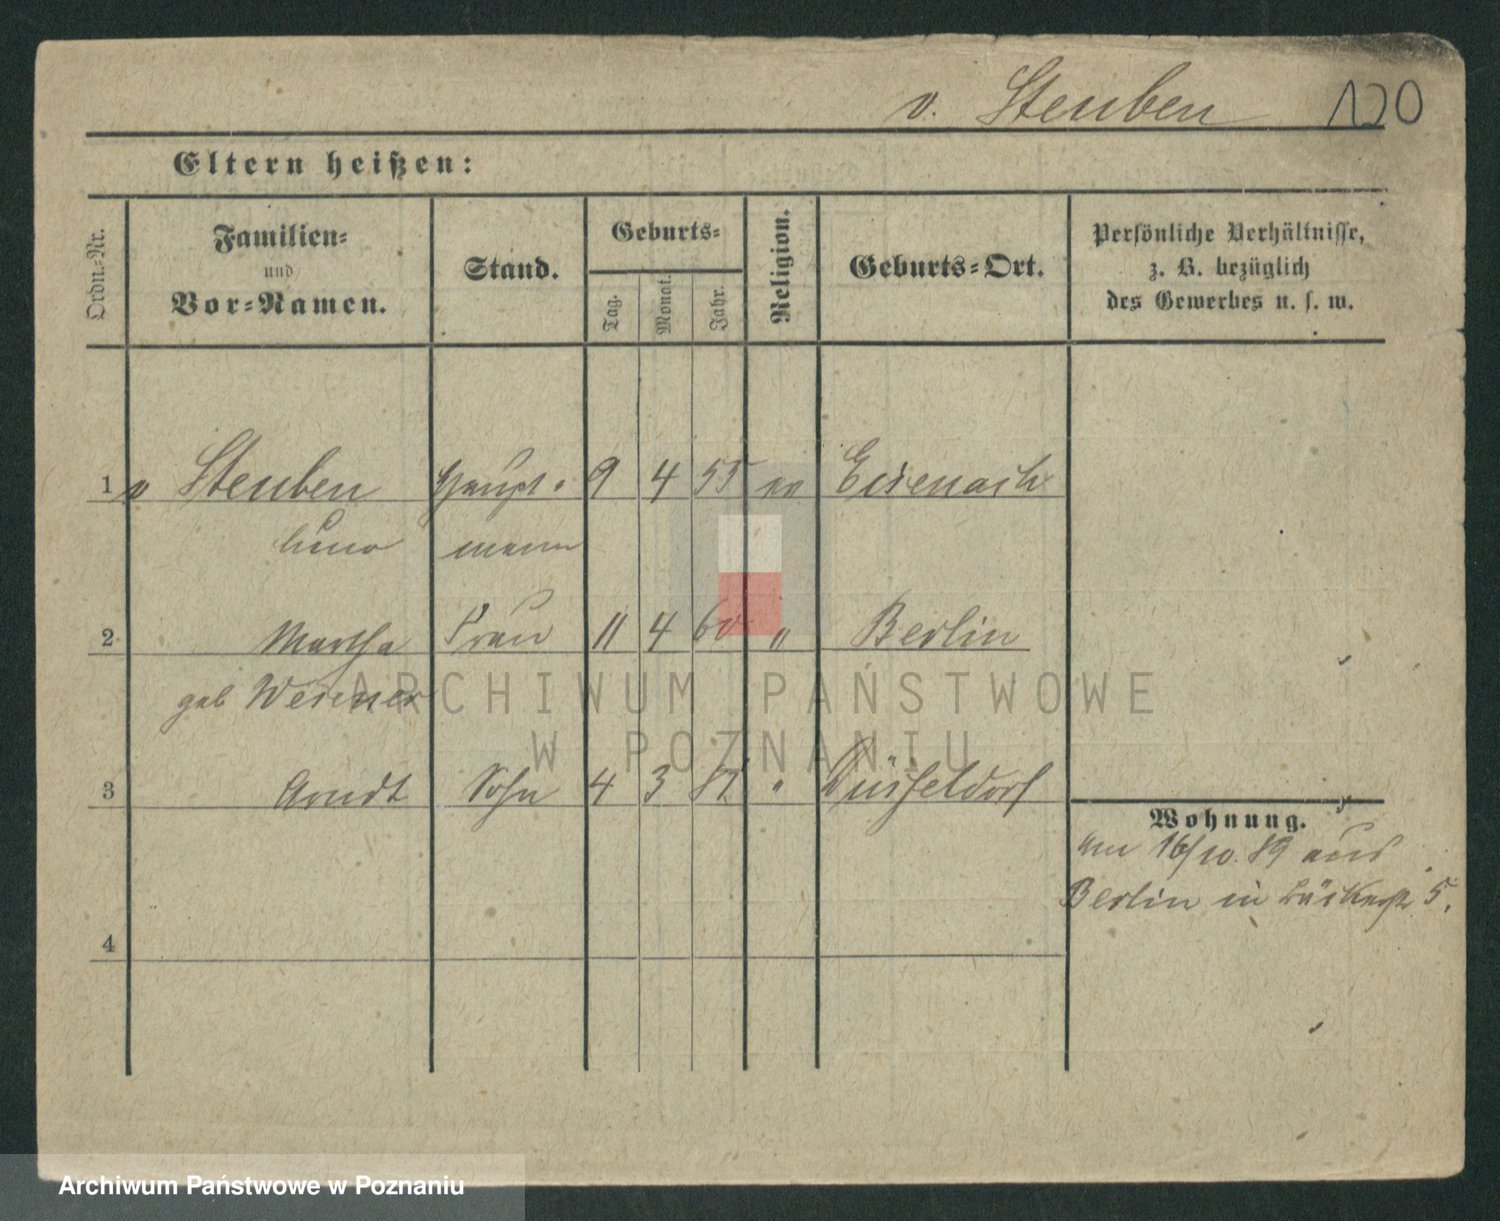 v. Steuben 120
Eltern heißen:
Ordn.-Nr.
Familien-
und
Vor-Namen.
Stand.
Geburts-
Tag.
Monat.
Jahr.
Religion.
Geburts-Ort.
Persönliche Verhältnisse,
z. B. bezüglich
des Gewerbes u. s. w.
1 v Steuben Haupt- 9 4 55 ev Eisenach
Cuno mann
2 Martha Frau 11 4 60 " Berlin
geb Wesener
3 Arndt Sohn 4 3 " Düsseldorf
Wohnung.
am 16/10. 89 aus
Berlin in 5.
4
ARCHIWUM PAŃSTWOWE
W POZNANIU
Archiwum Państwowe w Poznaniu